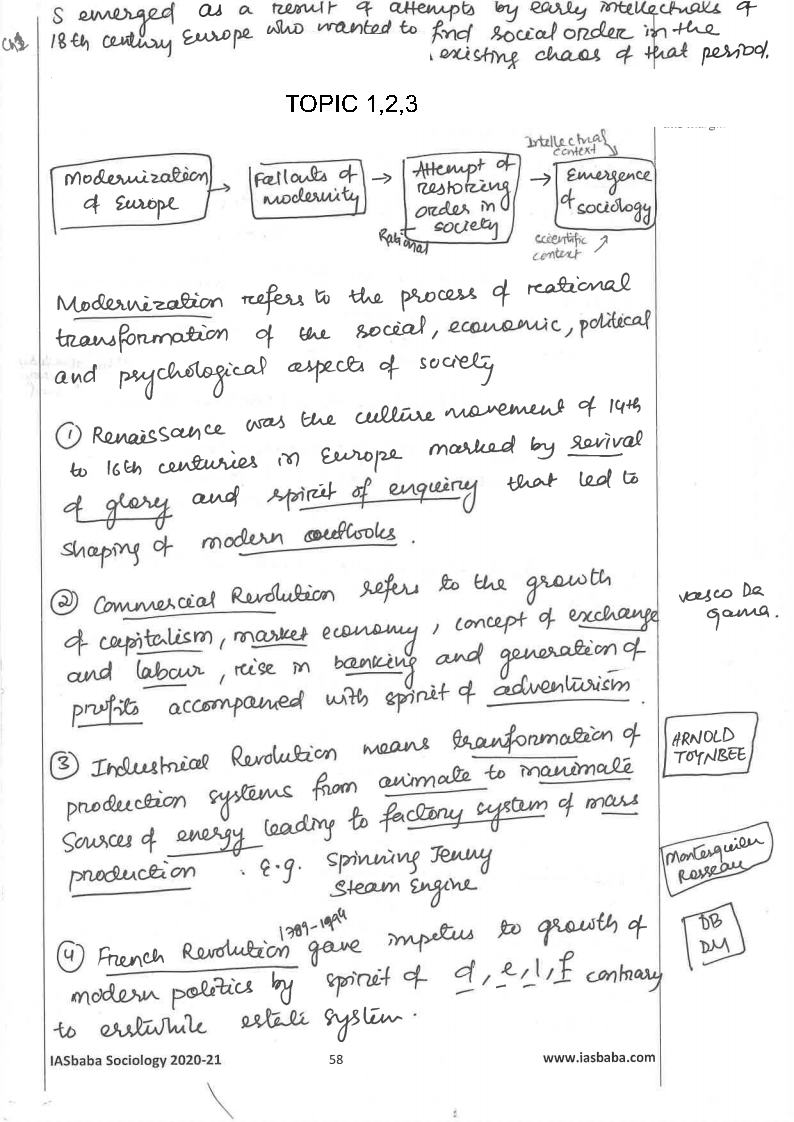 S emerged as a result of attempts by early intellectuals of
18th century Europe who wanted to find social order in the
existing chaos of that period.
TOPIC 1,2,3
Modernization
of Europe
Fallouts of
modernity
Attempt of
restoring
order in
society
Rational
Intellectual
context
Emergence
of sociology
scientific
context
Modernization refers to the process of rational
transformation of the social, economic, political
and psychological aspects of society
① Renaissance was the culture movement of 14th
to 16th centuries in Europe marked by revival
of glory and spirit of enquiry that led to
shaping of modern outlooks.
② Commercial Revolution refers to the growth
of capitalism, market economy, concept of exchange
and labour, rise in banking and generation of
profits accompanied with spirit of adventurism.
Vasco Da
Gama.
③ Industrial Revolution means transformation of
production systems from animate to inanimate
sources of energy leading to factory system of mass
production. E.g. Spinning Jenny
Steam Engine
ARNOLD
TOYNBEE
Montesquieu
Rosseau
④ French Revolution gave impetus to growth of
modern politics by spirit of d, e, l, f contrary
to erstwhile estate system.
DB
DM
IASbaba Sociology 2020-21
58
www.iasbaba.com